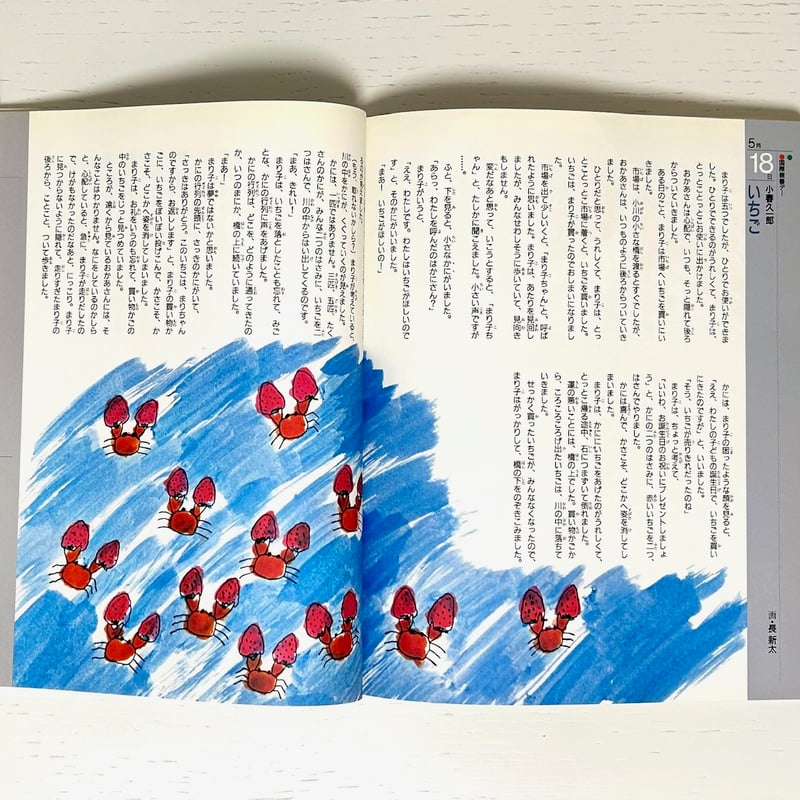 5月
18日
国際善意デー
小春久一郎
いちご
画・長 新太
まり子は五つでしたが、ひとりでお使いができま
した。ひとりでできるのがうれしくて、まり子は、
とことことことこお使いに出かけました。
おかあさんは心配で、いつも、そっと隠れて後ろ
からついていきました。
ある日のこと、まり子は市場へいちごを買いにい
きました。
市場は、小川の小さな橋を渡るとすぐでしたが、
おかあさんは、いつものように後ろからついていき
ました。
ひとりだと思って、うれしくて、まり子は、とっ
とことっとこ市場に着くと、いちごを買いました。
いちごは、まり子が買ったのでおしまいになりまし
た。
市場を出て少しいくと、「まり子ちゃん」と、呼ば
れたように思いました。まり子は、あたりを見回し
ましたが、みんなせわしそうに歩いていて、見向き
もしません。
変だなあと思って、いこうとすると、「まり子ち
ゃん」と、たしかに聞こえました。小さい声ですが
……。
ふと、下を見ると、小さなかにがいました。
「あらっ、わたしを呼んだのはかにさん?」
まり子がいうと、
「ええ、わたしです。わたしはいちごがほしいので
す」と、そのかにがいいました。
「まあ! いちごがほしいの!」
かには、まり子の困ったような顔を見ると、
「ええ、わたしの子どもの誕生日で、いちごを買い
にきたのですが」と、いいました。
「そう、いちごが売りきれだったのね」
まり子は、ちょっと考えて、
「いいわ、お誕生日のお祝いにプレゼントしましょ
う」と、かにの二つのはさみに、赤いいちごを二つ、
はさんでやりました。
かには喜んで、かさこそ、どこかへ姿を消してし
まいました。
まり子は、かにいちごをあげたのがうれしくて、
とっとこ帰る途中、石につまずいて倒れました。
運の悪いことには、橋の上でした。買い物かごか
ら、ころころころげ出たいちごは、川の中に落ちて
いきました。
せっかく買ったいちごが、みんななくなったので、
まり子はがっかりして、橋の下をのぞきこみました。
川の中をかにが、くぐっていくのが見えました。
かには、一匹ではありません。三匹、五匹、たく
さんのかにが、みんな二つのはさみに、いちごを二
つはさんで、川の中からはい出してくるのです。
「まあ、きれい!」
まり子は、いちごを落としたことも忘れて、みご
とな、かにの行列に声をあげました。
かにの行列は、どこを、どのように通ってきたの
か、いつのまにか、橋の上に続いていました。
「まあ!」
まり子は夢ではないかと思いました。
かにの行列の先頭に、さっきのかにがいて、
「さっきはありがとう。このいちごは、まりちゃん
のですから、お返しします」と、まり子の買い物か
ごに、いちごをぽいぽい投げこんで、かさこそ、か
さこそ、どこかへ姿を消してしまいました。
まり子は、お礼をいうのも忘れて、買い物かごの
中のいちごをじっと見つめていました。
ところが、遠くから見ているおかあさんには、そ
んなことはわかりません。なにをしているのかしら
と、心配していると、急に、まり子が走りだしたの
で、けがもなかったのだなあと、にっこり。まり子
に見つからないように隠れて、走りすぎたまり子の
後ろから、ことこと、ついて歩きました。